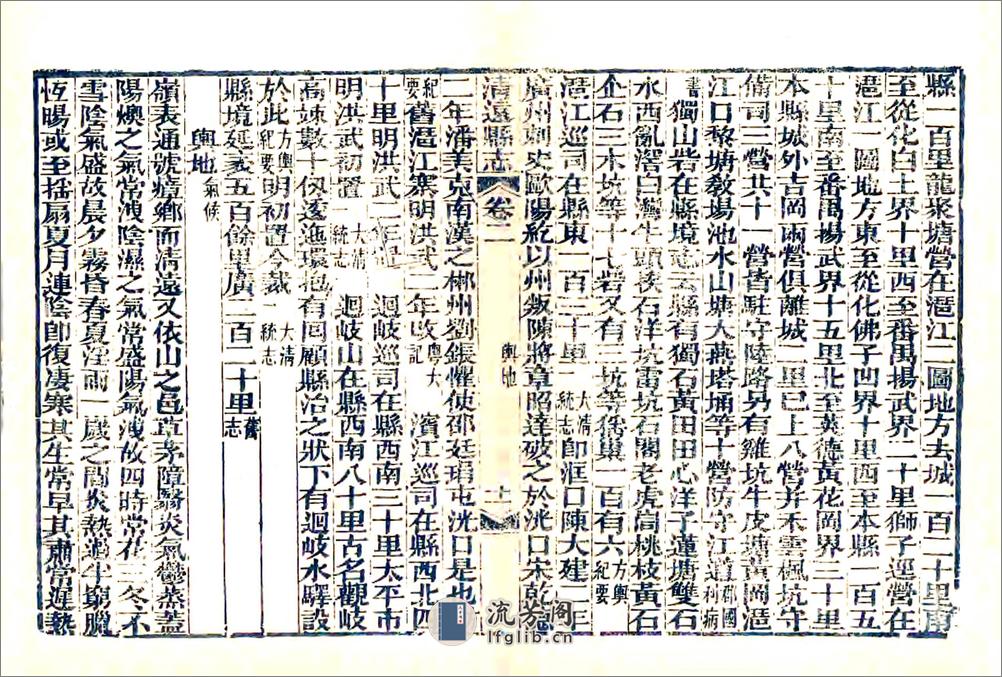 縣一百里龍聚塘營在潖江二圖地方去城一百二十里南
至從化白土界十里西至番禺揚武界二十里獅子逕營在
潖江一圖地方東至從化佛子凹界十里西至本縣一百五
十里南至番禺揚武界十五里北至英德黃花岡界三十里
本縣城外古岡兩營俱離城一里已上八營并禾雲楓坑守
備司三營共十一營皆駐守陸路另有雞坑牛皮塘黃岡潖
江口黎塘敎場池水山塘大燕塔埇等十營防守江道郡國利病
書獨山砦在縣境志云縣有獨石黃田田心洋子蓮塘雙石
水西亂滘白灣牛頭後石洋坑雷坑石閣老虎笥桃枝黃石
企石三木坑等十七砦又有三坑等徭巢一百有六方輿紀要
潖江巡司在縣東一百三十里大清一統志卽洭口陳大建二年
廣州刺史歐陽紇以州叛陳將章昭達破之於洸口宋乾德
清遠縣志 卷二 輿地 十一
二年潘美克南漢之郴州劉鋹懼使邵廷琄屯洸口是也方輿
紀要舊潖江寨明洪武二年改粵大記 濱江巡司在縣西北四
十里明洪武二年置 迴岐巡司在縣西南三十里太平市
明洪武初置大清一統志 迴岐山在縣西南八十里古名觀岐
高竦數十仭逶迤環抱有囘顧縣治之狀下有迴岐水驛設
於此方輿紀要明初置今裁大清一統志
縣境延袤五百餘里廣二百二十里舊志
輿地氣候
嶺表通號瘴鄕而清遠又依山之邑草茅障翳炎氣鬱蒸蓋
陽燠之氣常洩陰濕之氣常盛陽氣洩故四時常花三冬不
雪陰氣盛故晨夕霧昏春夏淫雨一歲之間炎熱過半窮臘
恆暘或至揺扇夏月連陰卽復凄寒其生常早其肅常遲熱
流芳阁
lfglib.cn